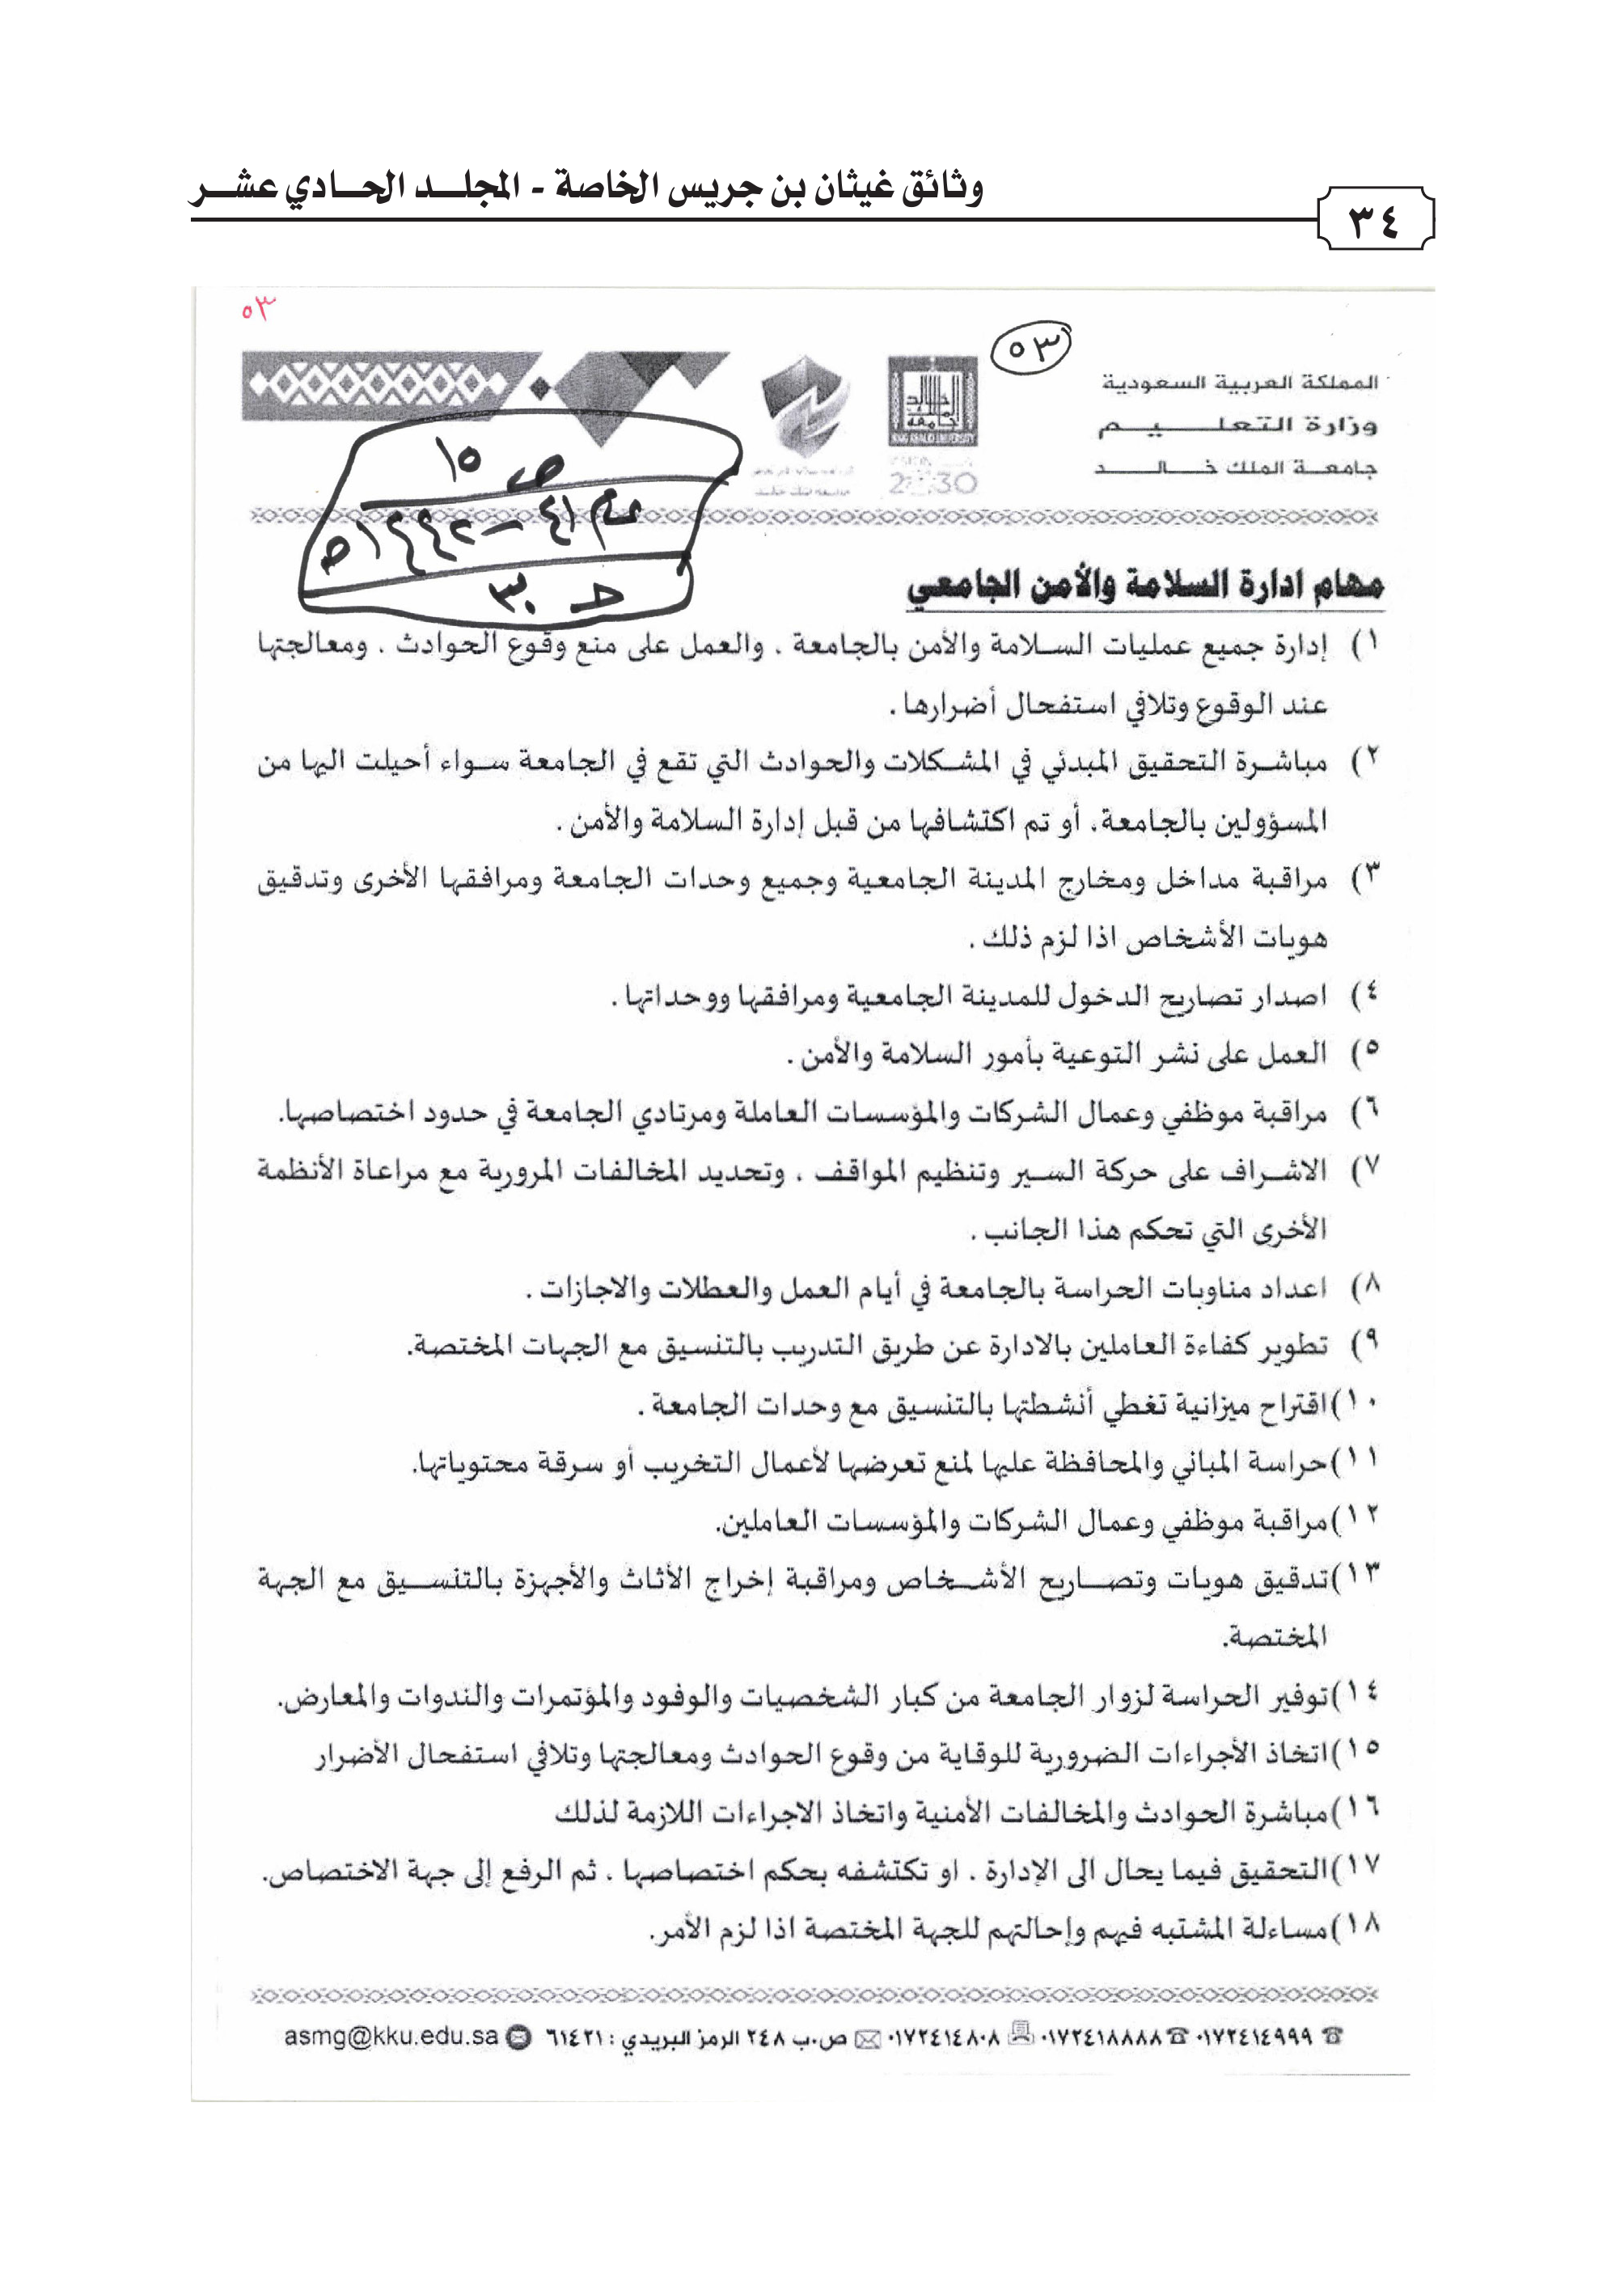 وثائق غيثان بن جريس الخاصة - المجلد الحادي عشر
٣٤
٥٣
٥٣
المملكة العربية السعودية
وزارة التعليم
جامعة الملك خالد
KING KHALID UNIVERSITY
2030
ص ١٥
عام ٤١ - ١٤٤٢هـ
ح ٣٠
مهام ادارة السلامة والأمن الجامعي
١) إدارة جميع عمليات السلامة والأمن بالجامعة ، والعمل على منع وقوع الحوادث ، ومعالجتها
عند الوقوع وتلافي استفحال أضرارها .
٢) مباشرة التحقيق المبدئي في المشكلات والحوادث التي تقع في الجامعة سواء أحيلت اليها من
المسؤولين بالجامعة، أو تم اكتشافها من قبل إدارة السلامة والأمن .
٣) مراقبة مداخل ومخارج المدينة الجامعية وجميع وحدات الجامعة ومرافقها الأخرى وتدقيق
هويات الأشخاص اذا لزم ذلك .
٤) اصدار تصاريح الدخول للمدينة الجامعية ومرافقها ووحداتها .
٥) العمل على نشر التوعية بأمور السلامة والأمن .
٦) مراقبة موظفي وعمال الشركات والمؤسسات العاملة ومرتادي الجامعة في حدود اختصاصها.
٧) الاشراف على حركة السير وتنظيم المواقف ، وتحديد المخالفات المرورية مع مراعاة الأنظمة
الأخرى التي تحكم هذا الجانب .
٨) اعداد مناوبات الحراسة بالجامعة في أيام العمل والعطلات والاجازات .
٩) تطوير كفاءة العاملين بالادارة عن طريق التدريب بالتنسيق مع الجهات المختصة.
١٠)اقتراح ميزانية تغطي أنشطتها بالتنسيق مع وحدات الجامعة .
١١)حراسة المباني والمحافظة عليها لمنع تعرضها لأعمال التخريب أو سرقة محتوياتها.
١٢)مراقبة موظفي وعمال الشركات والمؤسسات العاملين.
١٣)تدقيق هويات وتصاريح الأشخاص ومراقبة إخراج الأثاث والأجهزة بالتنسيق مع الجهة
المختصة.
١٤)توفير الحراسة لزوار الجامعة من كبار الشخصيات والوفود والمؤتمرات والندوات والمعارض.
١٥)اتخاذ الأجراءات الضرورية للوقاية من وقوع الحوادث ومعالجتها وتلافي استفحال الأضرار
١٦)مباشرة الحوادث والمخالفات الأمنية واتخاذ الاجراءات اللازمة لذلك
١٧)التحقيق فيما يحال الى الإدارة ، او تكتشفه بحكم اختصاصها ، ثم الرفع إلى جهة الاختصاص.
١٨)مساءلة المشتبه فيهم وإحالتهم للجهة المختصة اذا لزم الأمر.
٠١٧٢٤١٤٩٩٩ ٠١٧٢٤١٨٨٨٨ ٠١٧٢٤١٤٨٠٨ ص.ب ٢٤٨ الرمز البريدي : ٦١٤٢١ asmg@kku.edu.sa